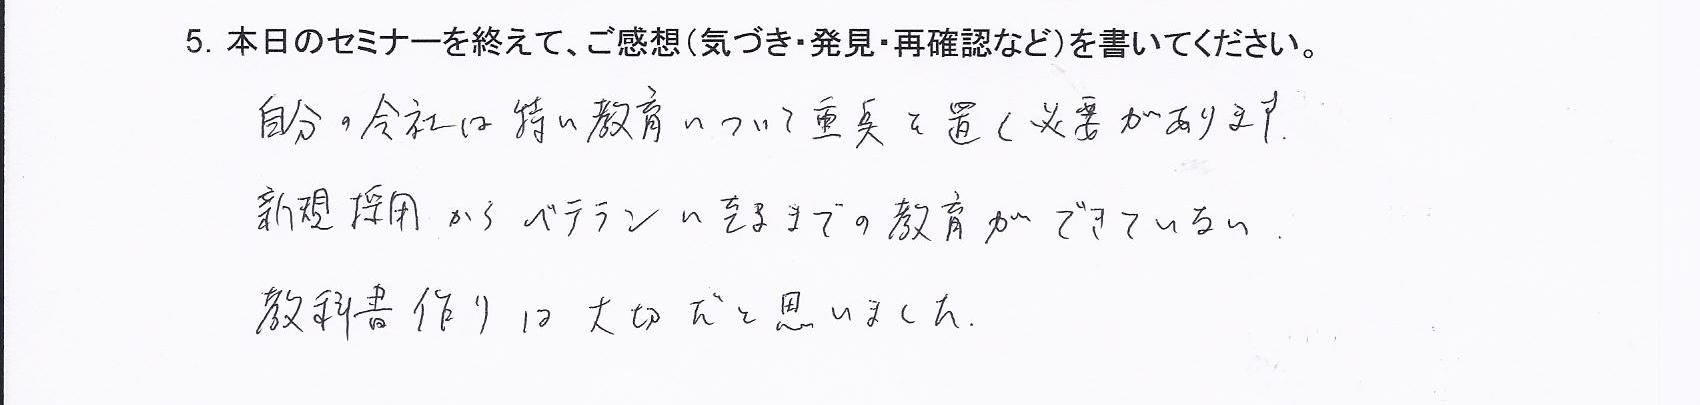 5. 本日のセミナーを終えて、ご感想(気づき・発見・再確認など)を書いてください。
自分の会社は特に教育について重点を置く必要があります.
新規採用からベテランに至るまでの教育ができていない.
教科書作りは大切だと思いました.